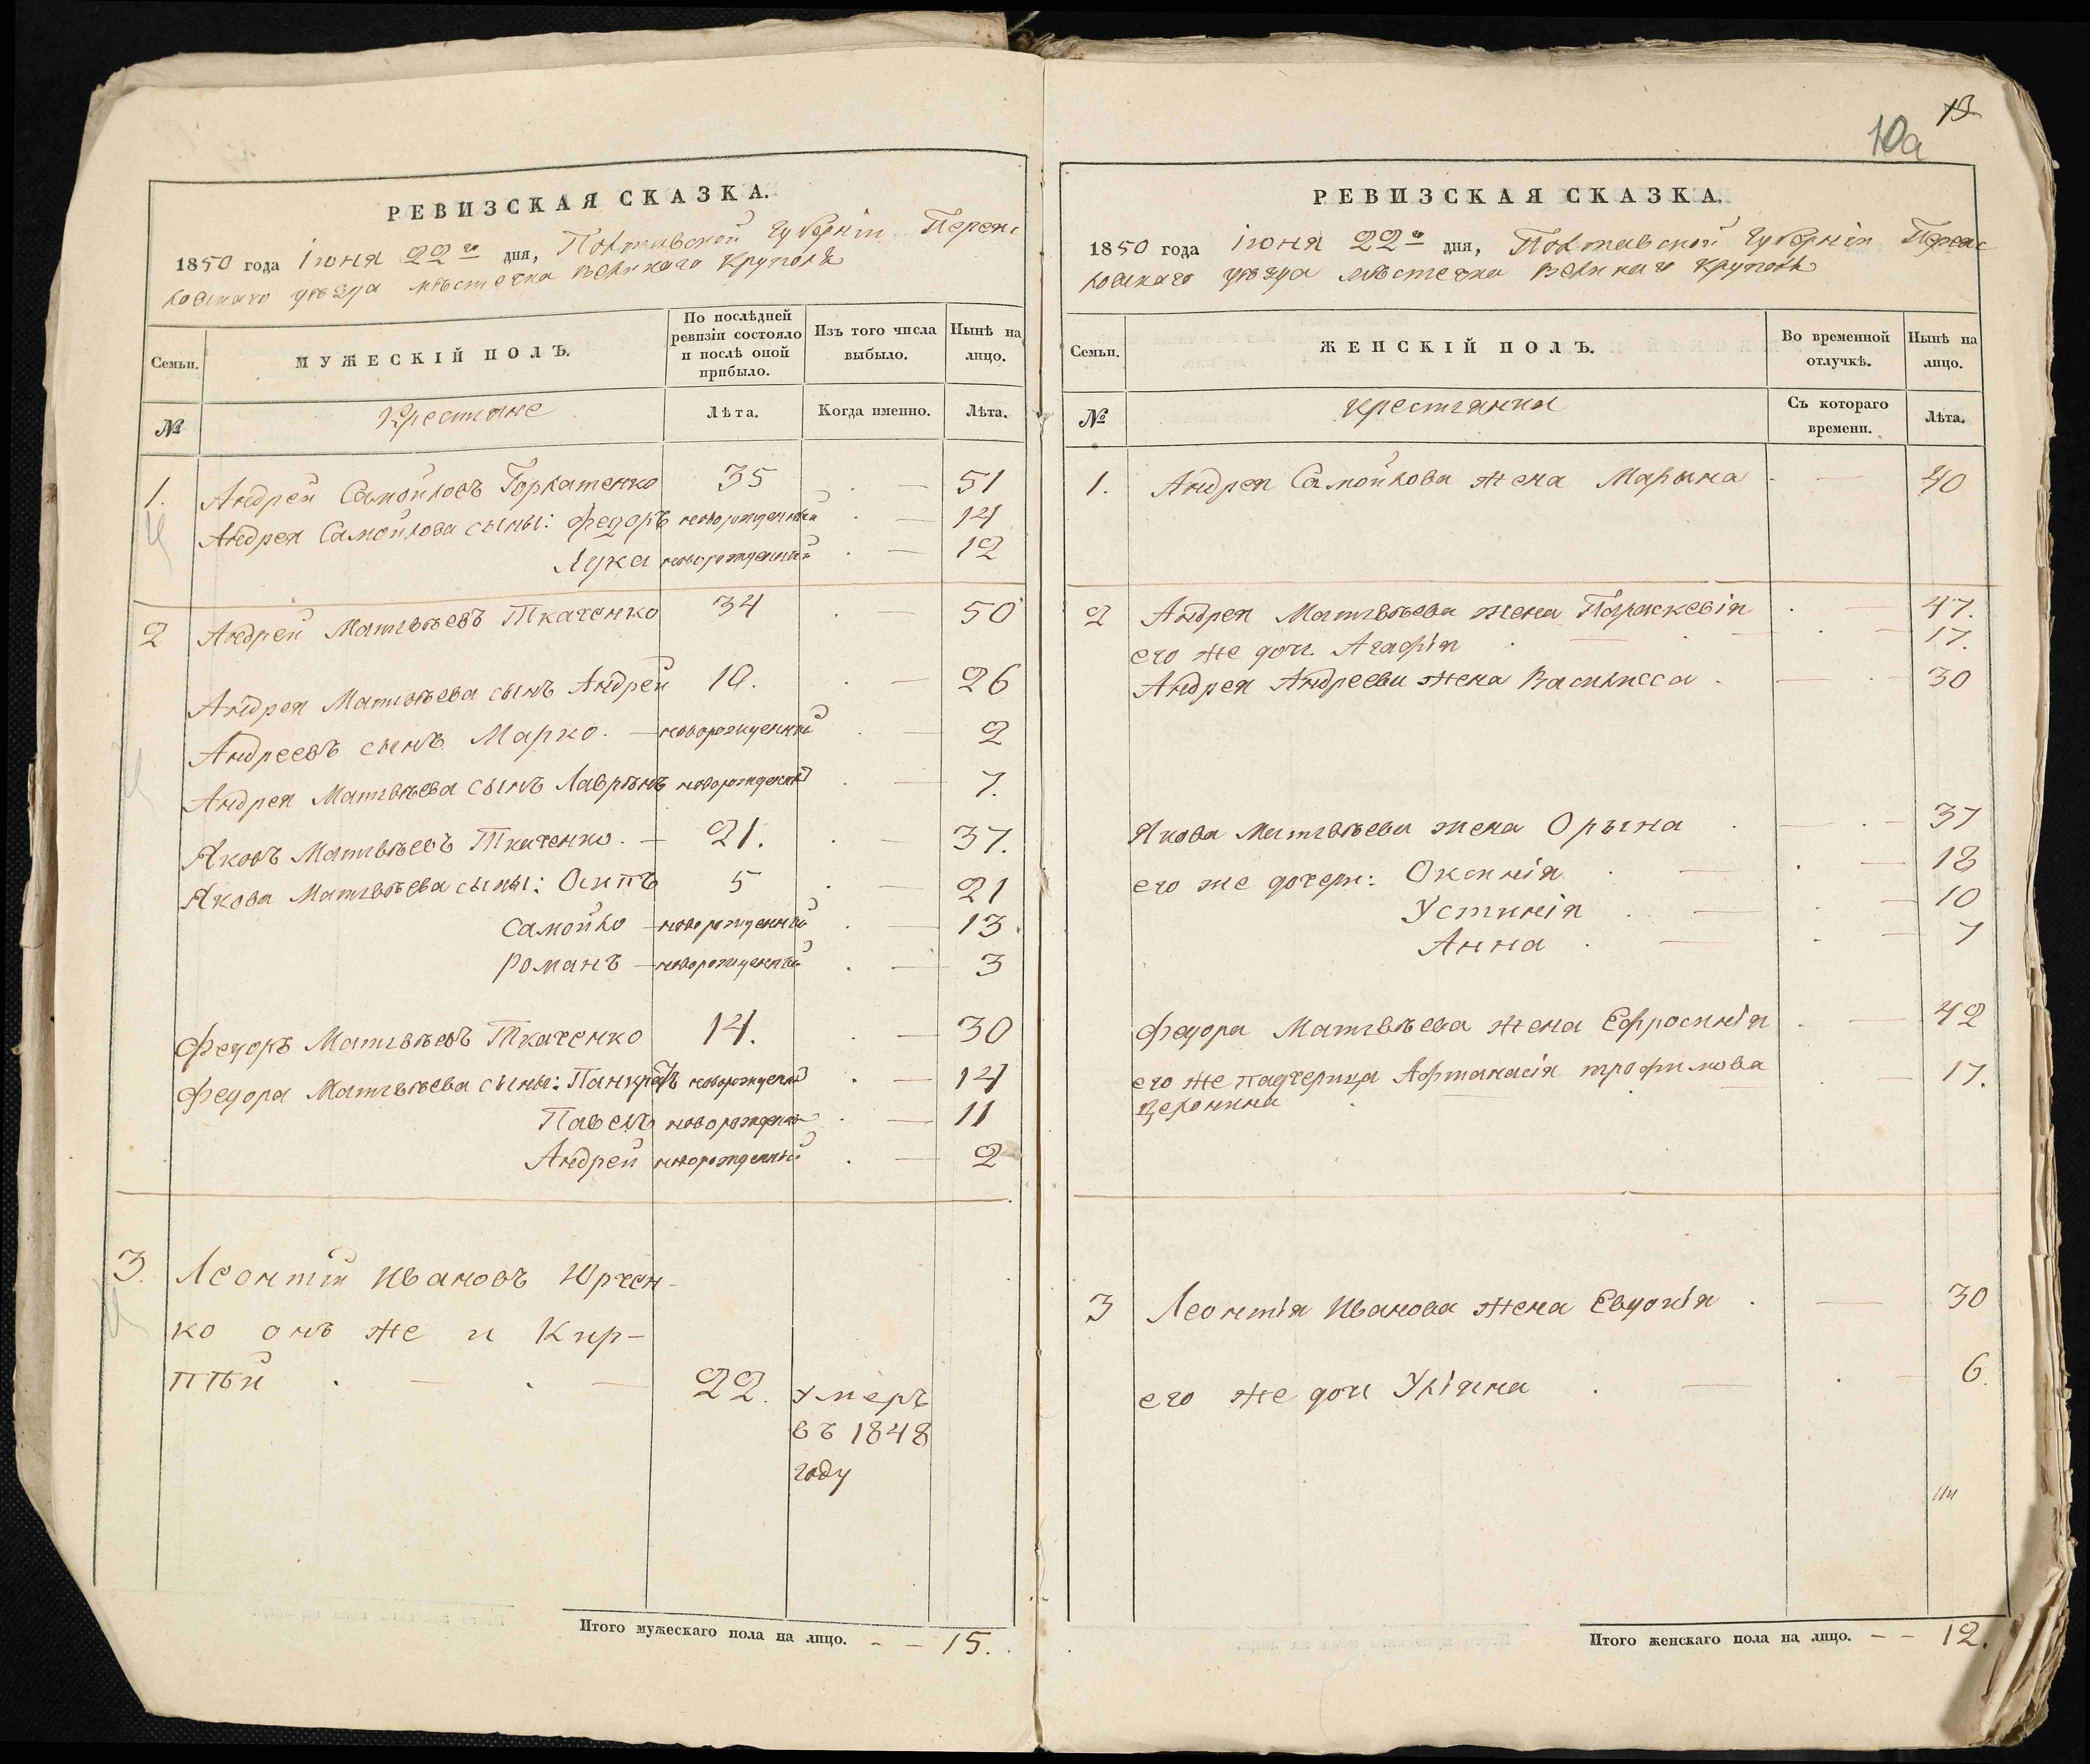 РЕВИЗСКАЯ СКАЗКА.
1850 года Іюня 22го дня, Полтавской Губерніи Переяс
ловскаго уѣзда мѣстечка Великаго Круполя
Семьи.
МУЖЕСКІЙ ПОЛЪ.
По послѣдней ревизіи состояло и послѣ оной прибыло.
Изъ того числа выбыло.
Нынѣ на лицо.
№
Крестяне
Лѣта.
Когда именно.
Лѣта.
1. Андрей Самойловъ Горкатенко 35 . — 51
Андрея Самойлова сыны: Федоръ новорожденный . — 14
Лука новорожденный . — 12
2 Андрей Матвѣевъ Ткаченко 34 . — 50
Андрея Матвѣева сынъ Андрей 10. . — 26
Андреевъ сынъ Марко. — новорожденный . — 2
Андрея Матвѣева сынъ Лаврѣнъ новорожденный . — 7.
Яковъ Матвѣевъ Ткаченко. — 21. . — 37.
Якова Матвѣева сыны: Осипъ 5 . — 21
Самойло — новорожденный . — 13
Романъ — новорожденный . — 3
Федоръ Матвѣевъ Ткаченко 14. . — 30
Федора Матвѣева сыны: Панкратъ новорожденный . — 14
Павелъ новорожденный . — 11
Андрей новорожденный . — 2
3. Леонтій Ивановъ Юрчен-
ко онъ же и Кир-
пѣй . — . — 22. умеръ
въ 1848
году
Итого мужескаго пола на лицо. — — 15.
10а
13
РЕВИЗСКАЯ СКАЗКА.
1850 года Іюня 22го дня, Полтавской Губерніи Переяс
ловскаго уѣзда мѣстечка Великаго Круполя
Семьи.
ЖЕНСКІЙ ПОЛЪ.
Во временной отлучкѣ.
Нынѣ на лицо.
№
Крестянки
Съ котораго времени.
Лѣта.
1. Андрея Самойлова жена Марына . — 40
2 Андрея Матвѣева жена Параскевія . — 47.
его же дочь Агафія . — . — 17.
Андрея Андреева жена Василисса . — . — 30
Якова Матвѣева жена Орына . — . — 37
его же дочери: Оксинія . — . — 18
Устинія . — . — 10
Анна . — . — 7
Федора Матвѣева жена Ефросинія . — 42
его же падчерица Афтанасія трофимова — . — 17.
Церонина
3 Леонтія Иванова жена Евдокія . — 30
его же дочь Уліяна . — . — 6.
Итого женскаго пола на лицо. — — 12.